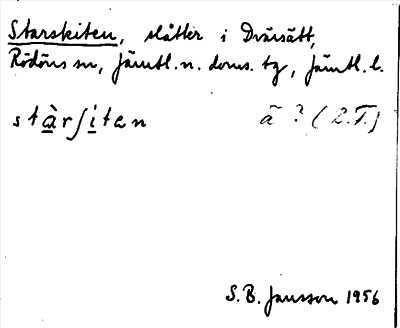 Starskiten, slåtter i Dvärsätt,
Rödöns sn, Jämtl. n. doms. tg, Jämtl. l.
stàrʃiten ā? (R.T.)
S.B. Jansson 1956